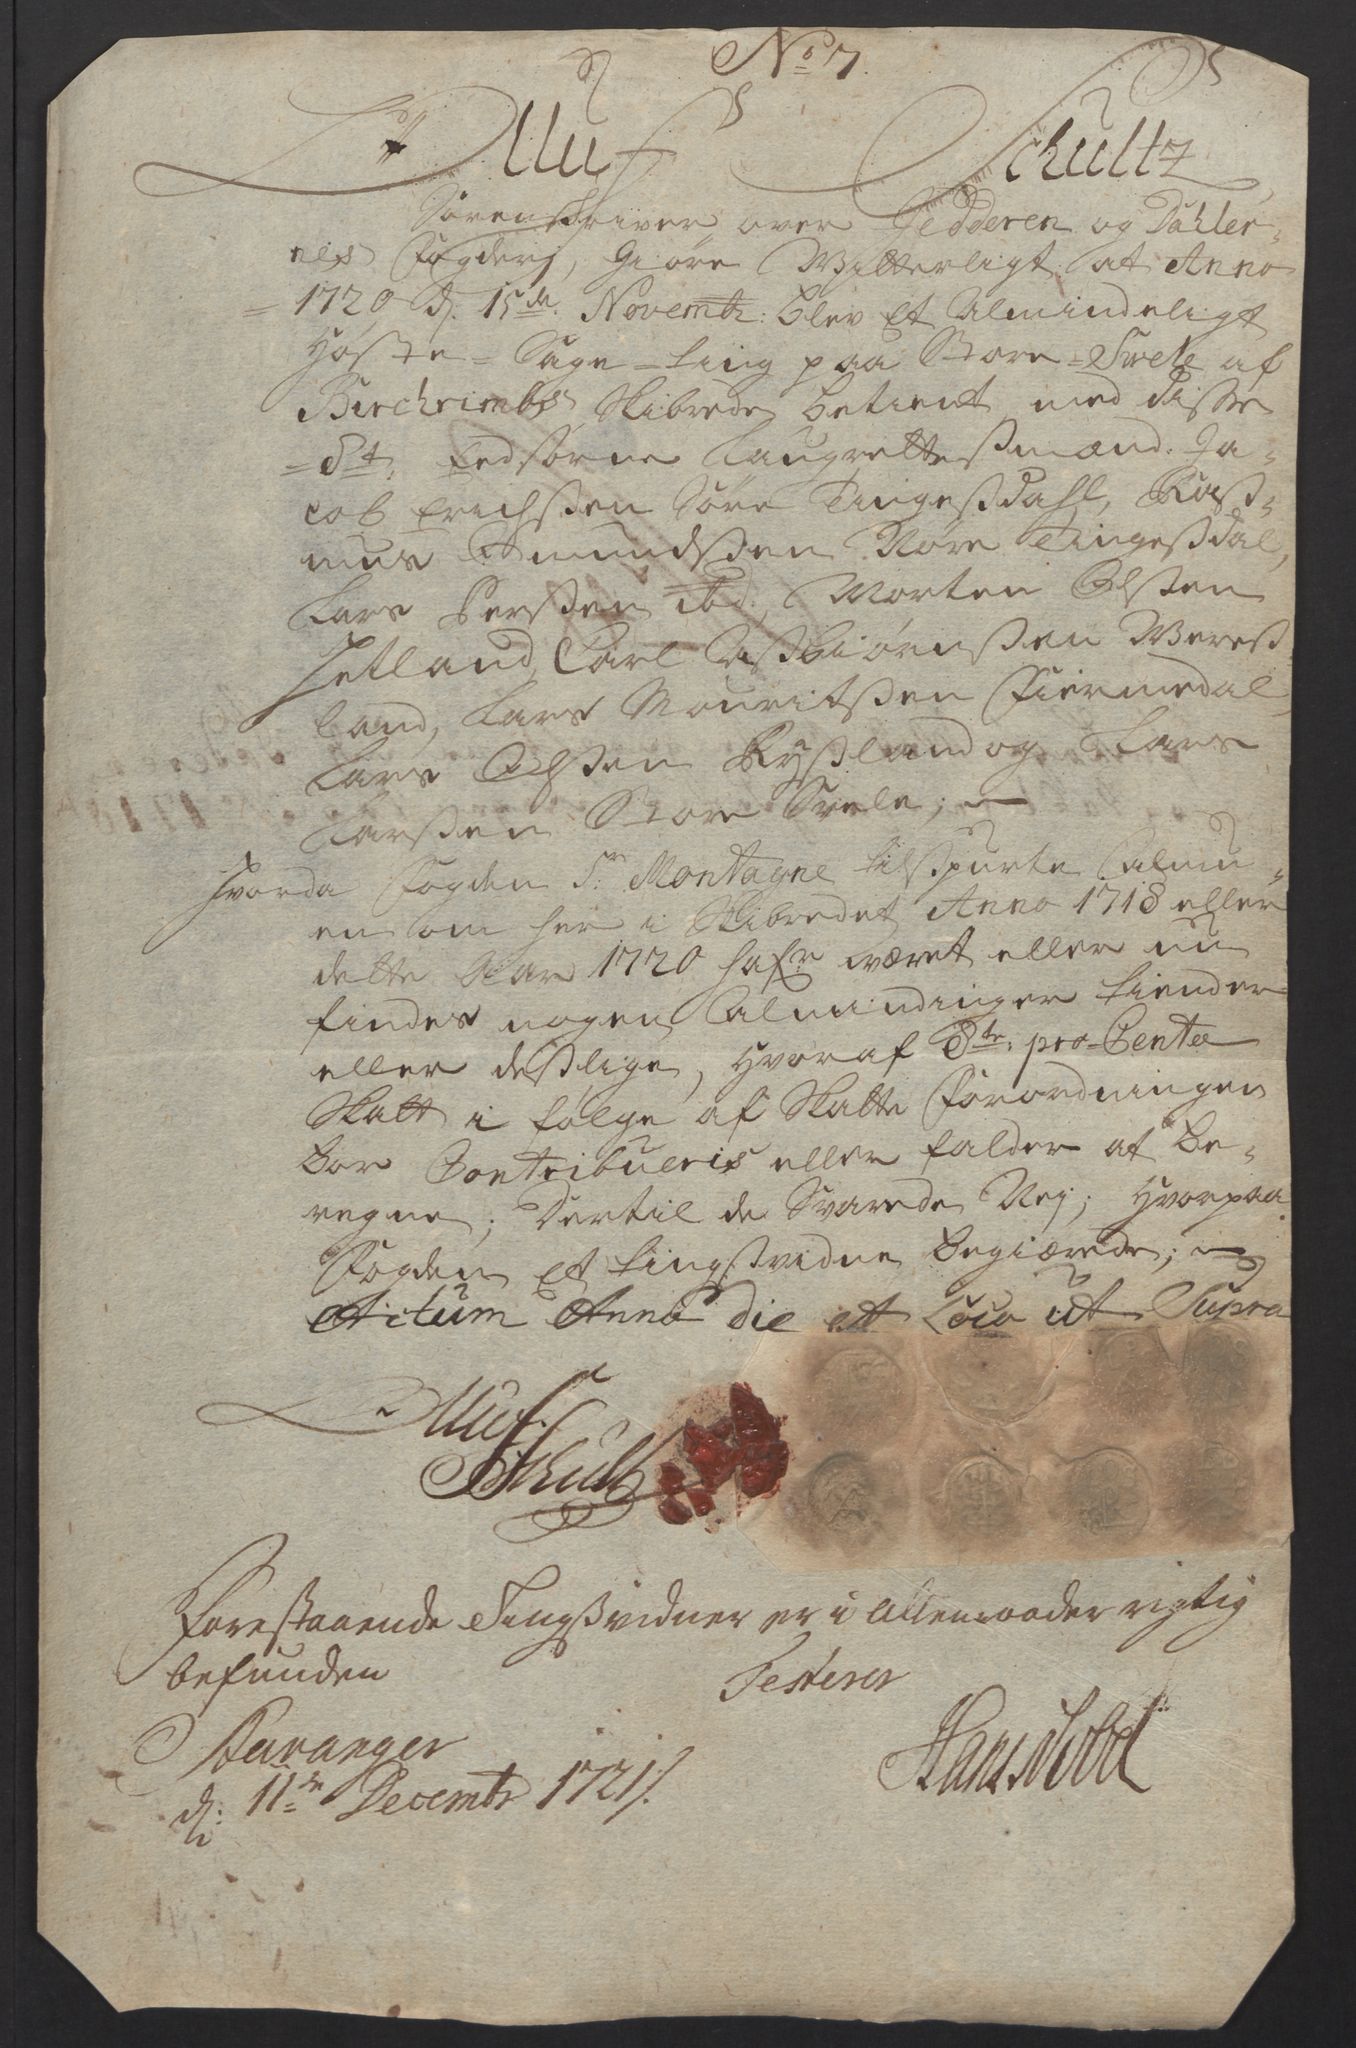 No 7.
Oluf Schultz
Sorenskriver over Jedderen og Dahler-
nes Fogderi, Giøre Witterligt at Anno
1720 d. 15de Novembr: blev et Almindeligt
Høste-Sage-ting paa Store-Svele af
Birchrimbs Skibrede betient med disse
8te Eedsorne Laugrettesmænd: Ja-
cob Erichssen Søre Tingessdahl, Rass-
mus Amundssen Nøre Tingessdal,
Lars Perssen ibd, Morten Olssen
Hetland, Carl Assbiørnssen Weress-
land, Lars Mouritssen Fiermedal
Lars Olssen Ryssland og Lars
Larssen Store Svele;
Hvorda Fogden Sr Montagne tilspurte Almu-
en om her i Skibredet Anno 1718 eller
dette Aar 1720 hafr været eller nu
findes nogen Almindinger tiender
eller desslige, hvoraf 8te pro Cento
Skatt i følge af Skatte Forordningen
bør Contribueris eller falder at be-
regne; Dertil de Svarede Nej; hvorpaa
Fogden et tingssvidne begiærede;
Actum Anno die et Loco ut Supra
Oluf
Schultz
Forestaaende Tingssvidner er i Allemaader rigtig
befunden
Testerer
Stavanger
d: 11te Decembr 1721.
Hans Nobel